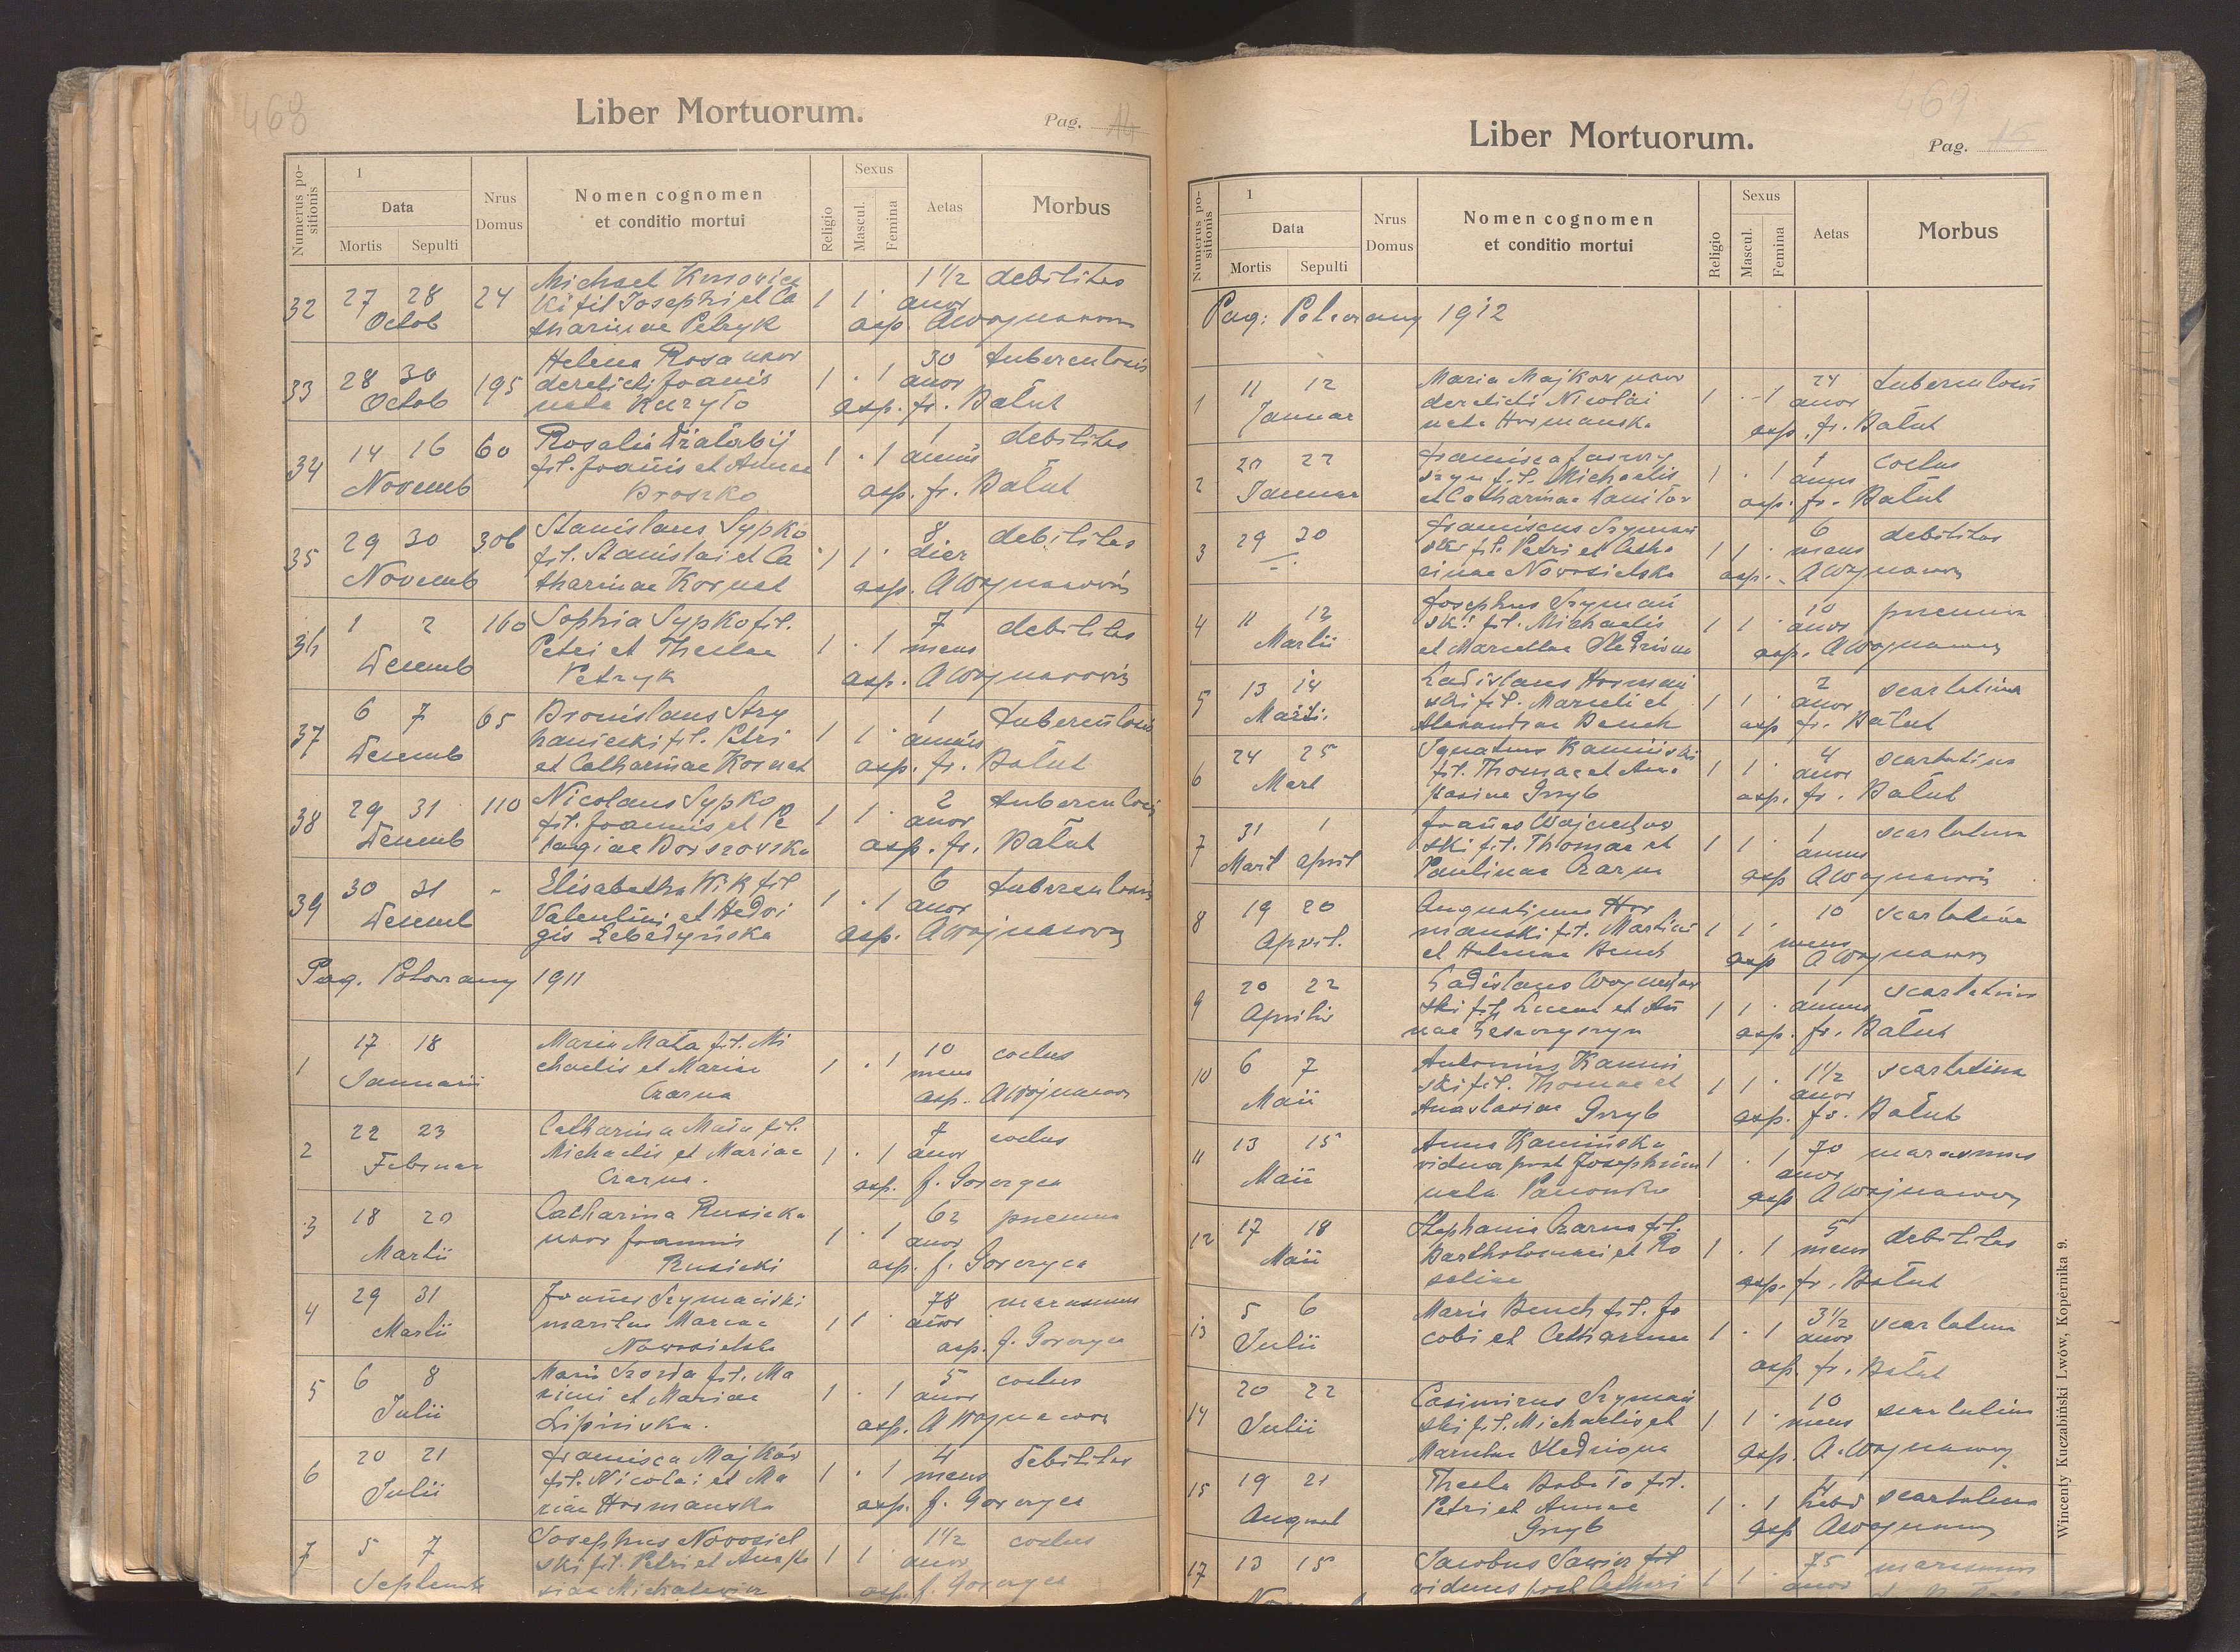 468
Liber Mortuorum.
Pag. 14
Numerus positionis
1
Data
Mortis Sepulti
Nrus Domus
Nomen cognomen
et conditio mortui
Religio
Sexus
Mascul. Femina
Aetas
Morbus
32 27 28 Octob 24 Michael
fil Josephi et Ca
tharinae Petryk 1 1 · 1 1/2 anor debilitas
asp.
33 28 30 Octob 195 Helena Rosa uxor
derelicti Joanis
nata Kuryło 1 · 1 30 anor tuberculosis
asp. fr. Bałut
34 14 16 Novemb 60 Rosalia
fil. Joanis et Annae
Broszko 1 · 1 1 annus debilitas
asp. fr. Bałut
35 29 30 Novemb 306 Stanislaus Sypko
fil. Stanislai et Ca
tharinae Kornat 1 1 · 8 dier debilitas
asp. A Wojnarowicz
36 1 2 Decemb 160 Sophia Sypko fil.
Petri et Theclae
Petryk 1 · 1 7 mens debilitas
asp. A Wojnarowicz
37 6 7 Decemb 65 Bronislaus Stry
fil. Petri
et Catharinae Kornat 1 1 · 1 annus tuberculosis
asp. fr. Bałut
38 29 31 Decemb 110 Nicolaus Sypko
fil. Joannis et Pe
lagiae Borszowska 1 1 · 2 anor tuberculosis
asp. fr. Bałut
39 30 31 Decemb - Elisabetha Wik fil
Valentini et Hedvi
gis Lebedyńska 1 · 1 6 anor tuberculosis
asp. A Wojnarowicz
Pag. Potorany 1911
1 17 18 Januarii Maria Mała fil. Mi
chaelis et Mariae
Czarna 1 · 1 10 mens coctus
asp. A Wojnarow
2 22 23 Februar Catharina Mała fil.
Michaelis et Mariae
Czarna. 1 · 1 7 anor coctus
asp. f. Goroncza
3 18 20 Martii Catharina Rusicka
uxor Joannis
Rusicki 1 · 1 62 anor pneumon
asp. f.
4 29 31 Martii Joannes Szymański
maritus Mariae
Nowosielska 1 1 · 78 anor marasmus
asp. f.
5 6 8 Julii Maria fil. Ma
ximi et Mariae
Lipinska. 1 · 1 5 anor coctus
asp. A Wojnarow
6 20 21 Julii Francisca Majkór
fil. Nicolai et Ma
riae Hormanska 1 · 1 4 mens debilitas
asp. f.
7 5 7 Septemb Josephus Nowosiel
ski fil. Petri et Anasta
siae Michalewicz 1 1 · 1 1/2 anor coctus
asp. f.
469
Liber Mortuorum.
Pag. 15
Numerus positionis
1
Data
Mortis Sepulti
Nrus Domus
Nomen cognomen
et conditio mortui
Religio
Sexus
Mascul. Femina
Aetas
Morbus
Pag: Potorany 1912
1 11 12 Januar Maria Majkor uxor
derelicti Nicolai
nata Hormanska 1 · 1 24 anor tuberculosis
asp. fr. Bałut
2 20 22 Januar Francisca
fil. Michaelis
et Catharinae 1 · 1 1 annus coctus
asp. fr. Bałut
3 29 30 Franciscus Szymań
ski fil. Petri et Catha
rinae Nowosielska 1 1 · 6 mens debilitas
asp. A Wojnarow
4 11 12 Martii Josephus Szymań
ski fil. Michaelis
et Marcellae 1 1 · 10 anor pneumon
asp. A Wojnarow
5 13 14 Martii Ladislaus Horman
ski fil. Marceli et
Alexandrae Bench 1 1 · 2 anor scarlatina
asp fr. Bałut
6 24 25 Mart Ignatius Kamiński
fil. Thomae et Ana
stasiae Grzyb 1 1 · 4 anor scarlatina
asp. fr. Bałut
7 31 1 Mart April Joannes
ski fil. Thomae et
Paulinae Czarna 1 1 · 1 annus scarlatina
asp A Wojnarowicz
8 19 20 April. Augustinus Hor
manski fil. Martini
et Helenae Bench 1 1 · 10 mens scarlatina
asp A Wojnarow
9 20 22 Aprilis Ladislaus
ski fil. Lucae et An
nae 1 1 · 1 annus scarlatina
asp. fr. Bałut
10 6 7 Maii Antonius Kamin
ski fil. Thomae et
Anastasiae Grzyb 1 1 · 1 1/2 anor scarlatina
asp. fr. Bałut
11 13 15 Maii Anna Kamińska
vidua post Josephum
nata 1 · 1 70 anor marasmus
asp A Wojnarow
12 17 18 Maii Stephania Czarna fil.
Bartholomaei et Ro
saliae 1 · 1 5 mens debilitas
asp. fr. Bałut
13 5 6 Julii Maria Bench fil. Ja
cobi et Catharinae 1 · 1 3 1/2 anor scarlatina
asp. fr. Bałut
14 20 22 Julii Casimirus Szymań
ski fil. Michaelis et
Marcellae 1 1 · 10 mens scarlatina
asp. A. Wojnarow
15 19 21 August Thecla fil.
Petri et Annae
Grzyb 1 · 1 4 hebd scarlatina
asp A Wojnarow
17 13 15 Jacobus fil
viduus post Cathari 1 1 · 75 anor marasmus
Wincenty Kuczabiński Lwów, Kopernika 9.